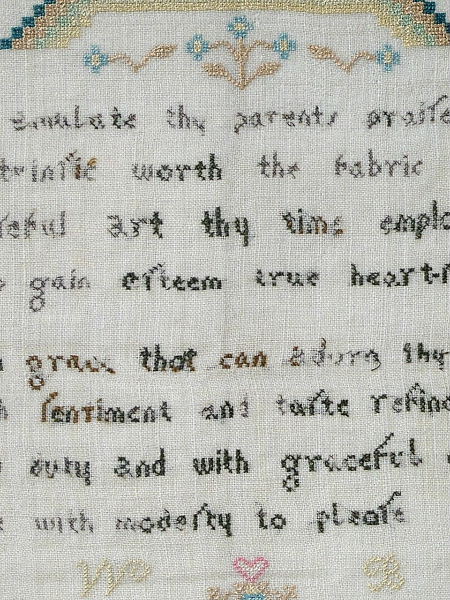 emulate thy parents praise
trinſic worth the fabric
uſeful art thy time emplo
gain eſteem true heart-f
grace that can adorn thy
ſentiment and taſte refine
duty and with graceful
with modeſty to pleaſe
W R